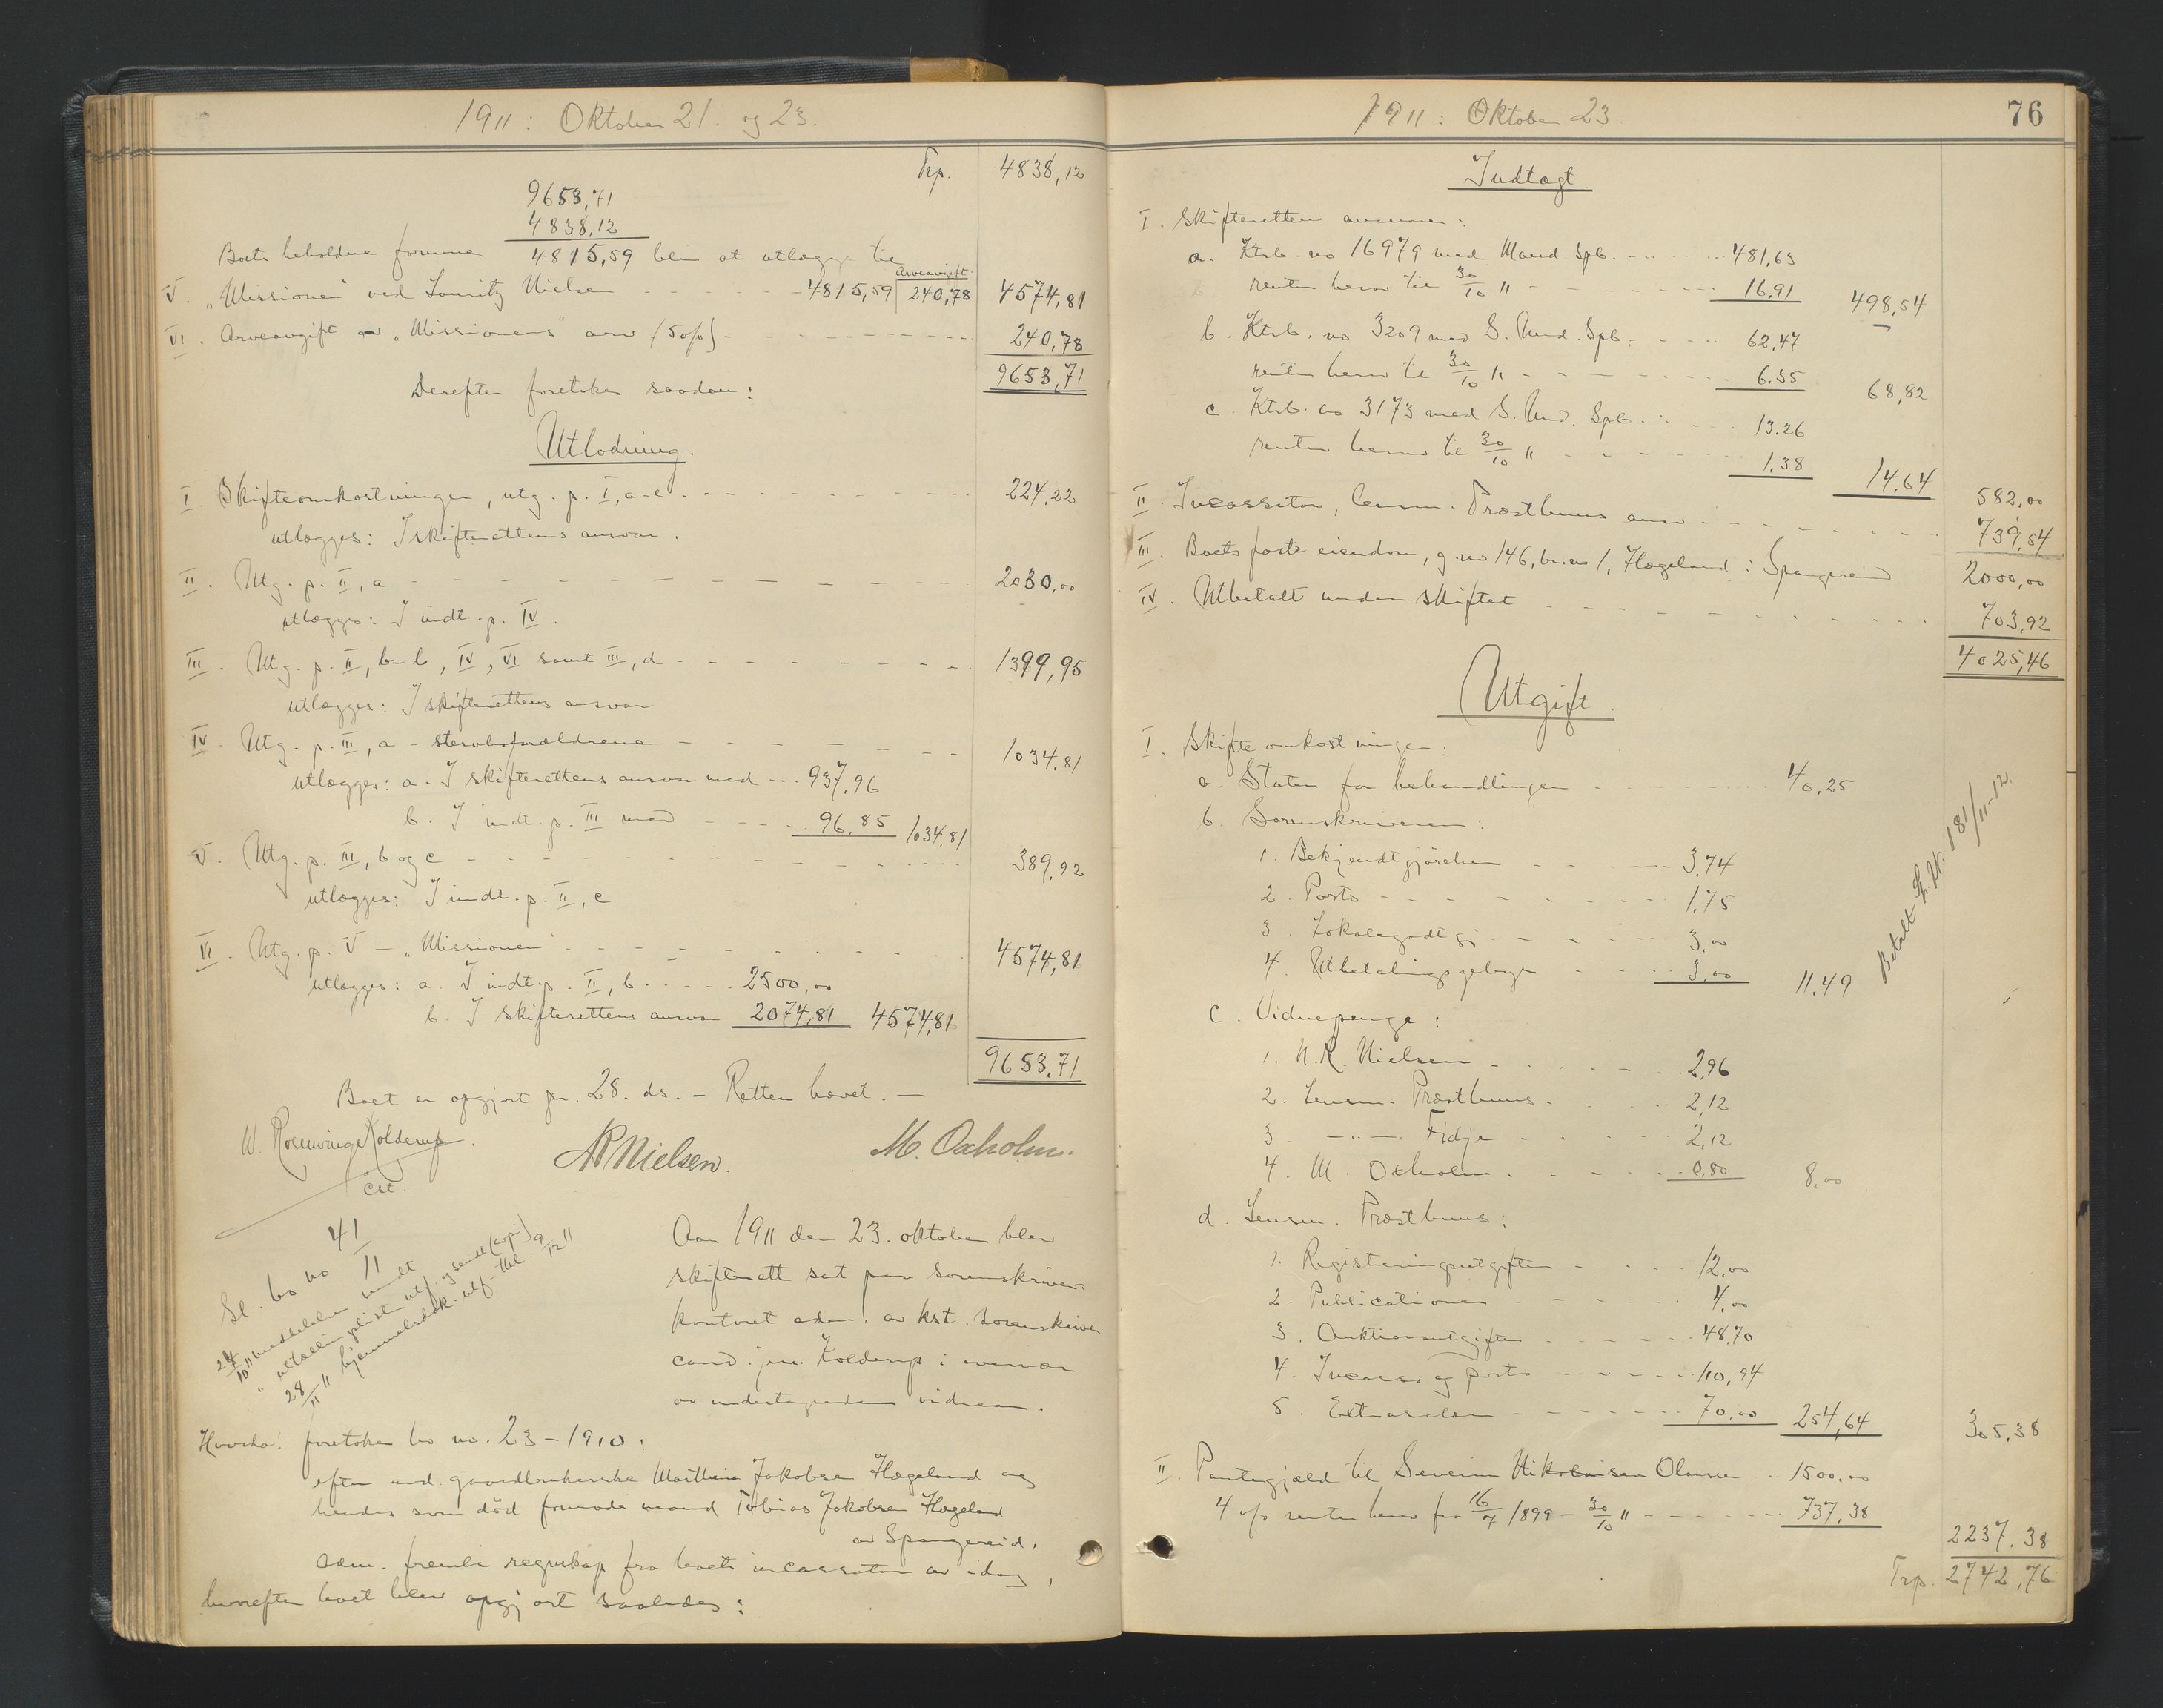 1911: Oktober 21. og 23.
Trp. 4838,12
9653,71
4838,12
Boets beholdne formue 4815,59 blir at utlægge til
Arveavgift
V. „Missionen" ved Lauritz Nielsen 4815,59 240,78 4574,81
VI. Arveavgift av „Missionens" arv (5 o/o) 240,78
9653,71
Derefter foretokes saadan:
Utlodning.
I. Skifteomkostninger, utg. p. I, a-e 224,22
utlægges: I skifterettens ansvar.
II. Utg. p. II, a 2030,00
utlægges: I indt. p. IV.
III. Utg. p. II, b-b, IV, VI samt III, d 1399,95
utlægges: I skifterettens ansvar
IV. Utg. p. III, a - stervboforældrene 1034,81
utlægges: a. I skifterettens ansvar med 937,96
b. I indt. p. III med 96,85 1034,81
V. Utg. p. III, b og c 389,92
utlægges: I indt. p. II, c
VI. Utg. p. V - „Missionen" 4574,81
utlægges: a. I indt. p. II, b 2500,00
b. I skifterettens ansvar 2074,81 4574,81
9653,71
Boet er opgjort pr. 28. ds. - Retten hævet. -
W. Rosenvinge Kolderup.
cst.
NR Nielsen.
M. Oxholm.
Sl. bo no 41/11
24/10 11 meddelelse sendt
" utlodningslist utf. og sendt (kopi) 9/12 11
28/11 11 hjemmelsdok. utf.
Aar 1911 den 23. oktober blev
skifterett sat paa sorenskriver-
kontoret adm. av kst. sorenskriver
cand. jur. Kolderup i overvær
av undertegnede vidner.
Hvorda: foretokes bo no. 23-1910:
efter avd. gaardbrukerske Marthea Jakobsen Hægeland og
hendes som død formodede mand Tobias Jakobsen Hægeland
av Spangereid.
Adm. fremla regnskap fra boets incassator av idag,
hvorefter boet blev opgjort saaledes:
1911: Oktober 23.
76
Indtægt
I. Skifterettens ansvar:
a. Ktrb. no 16979 med Mand. Spb. 481,63
renter herav til 30/10 11 16,91 498,54
b. Ktrb. no 3209 med S. Und. Spb. 62,47
renter herav til 30/10 11 6.35 68,82
c. Ktrb. no 3173 med S. Und. Spb. 13.26
renter herav til 30/10 11 1,38 14,64
582,00
II. Incassator, lensm. Præsthuus ansv. 739,54
III. Boets faste eiendom, g.no 146, br.no 1, Hægeland i Spangereid 2000,00
IV. Utbetalt under skiftet 703,92
4025,46
Utgift.
I. Skifteomkostninger:
a. Staten for behandlingen 40,25
b. Sorenskriveren:
1. Bekjendtgjørelsen 3,74
2. Porto 1,75
3. Lokalegodtgj. 3,00
4. Utbetalingsgebyr 3,00 11,49
Betalt
c. Vidnepenge:
1. N.R. Nielsen 2,96
2. Lensm. Præsthuus 2,12
3. -"- Fidje 2,12
4. M. Oxholm 0,80 8,00
d. Lensm. Præsthuus:
1. Registreringsutgifter 12,00
2. Publicationer 4,00
3. Auktionsutgifter 48,70
4. Incasso og porto 110,94
5. Extrasalær 70,00 254,64
305,38
II. Pantegjæld til Severin Nikolaisen Olaussen 1500,00
4 o/o renter herav fra 16/7 1899 - 30/10 11 737,38
2237.38
Trp. 2742,76